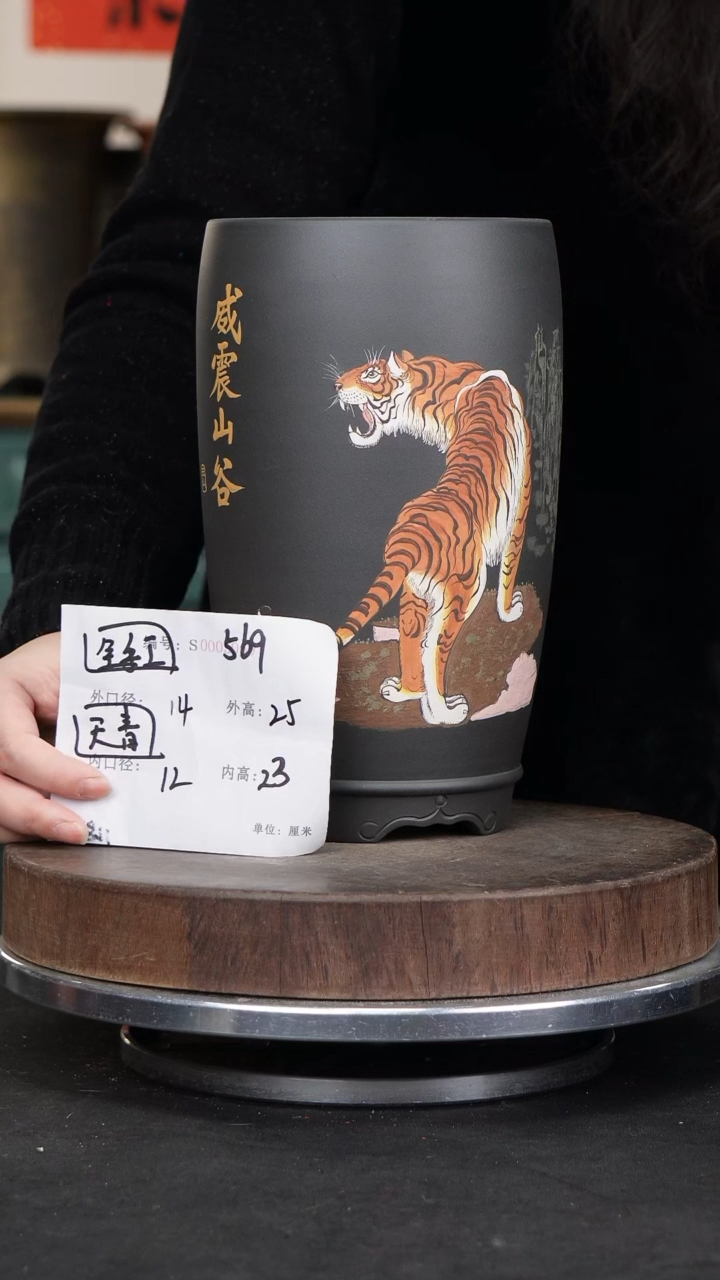 威震山谷
全手工
编号：S000569
外口径：14 外高：25
天青
内口径：12 内高：23
单位：厘米